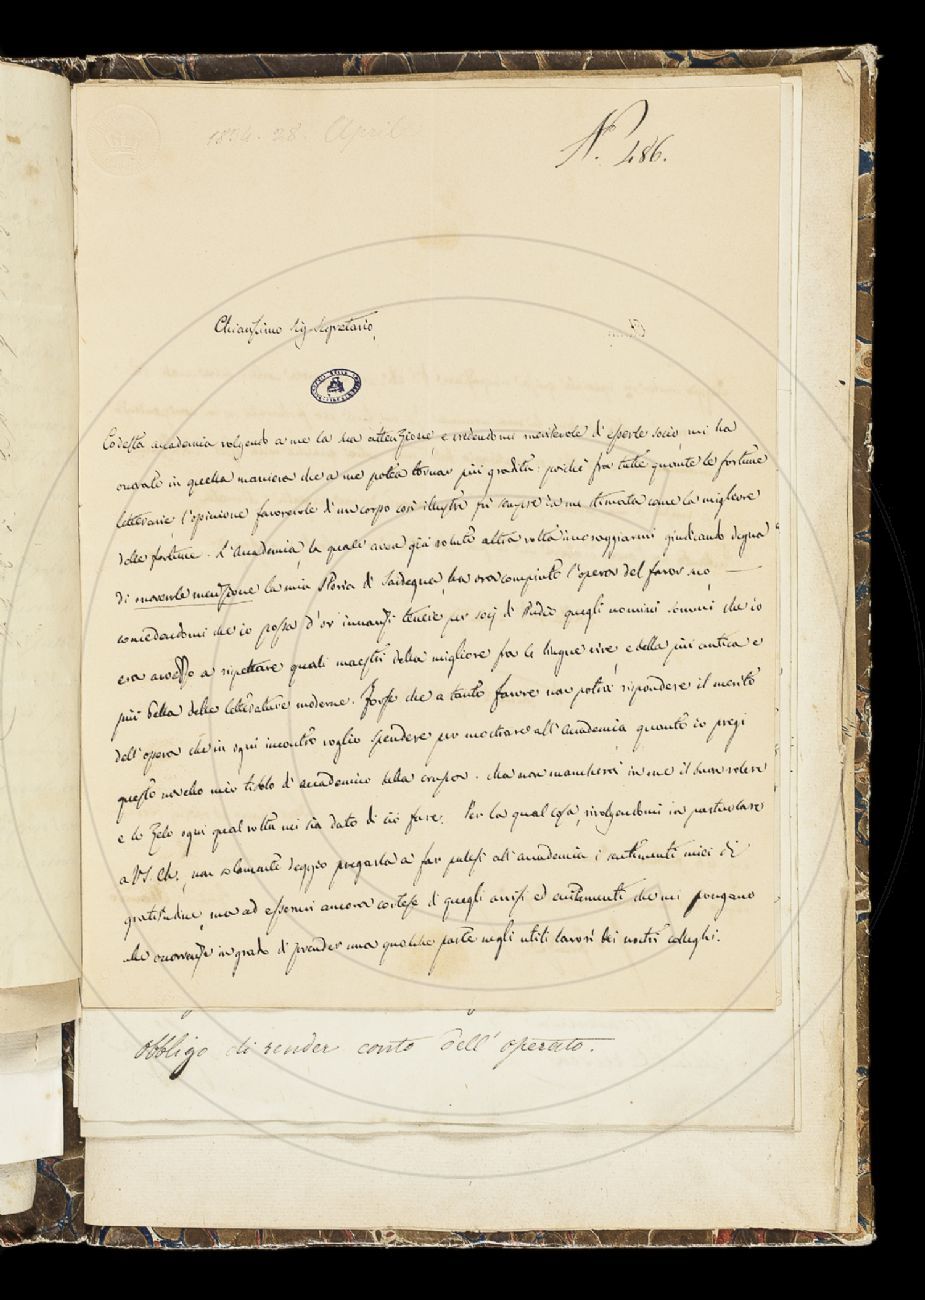 1834. 28. Aprile
N.° 486.
Chiarissimo Sig. Segretario,
Codesta accademia volgendo a me la sua attenzione e credendomi meritevole d'esserle socio mi ha
onorato in quella maniera che a me potea tornar più gradita: poiché fra tutte quante le fortune
letterarie l'opinione favorevole di un corpo così illustre fu sempre da me stimata come la migliore
delle fortune. L'Accademia la quale avea già voluto altra volta incoraggiarmi giudicando degna
di onorevole menzione la mia Storia di Sardegna, ha ora compiuto l'opera del favor suo
concedendomi che io possa d'or innanzi tenere per socj di studio quegli uomini sommi che io
era avvezzo a rispettare quali maestri della migliore fra le lingue vive e della più antica e
più bella delle letterature moderne. Forse che a tanto favore non potrà rispondere il merito
dell'opera che in ogni incontro voglio spendere per mostrare all'Accademia quanto io pregi
questo novello mio titolo di accademico della crusca. Ma non mancherà in me il buon volere
e lo zelo ogni qual volta mi sia dato di ciò fare. Per la qual cosa, rivolgendomi in particolare
a VS. Ch., non solamente deggio pregarla a far palesi all'accademia i sentimenti miei di
gratitudine, ma ad essermi ancora cortese di quegli avvisi ed eccitamenti che mi pongano
alle occorrenze in grado di prender una qualche parte negli utili lavori dei nostri colleghi.
obbligo di render conto dell'operato.